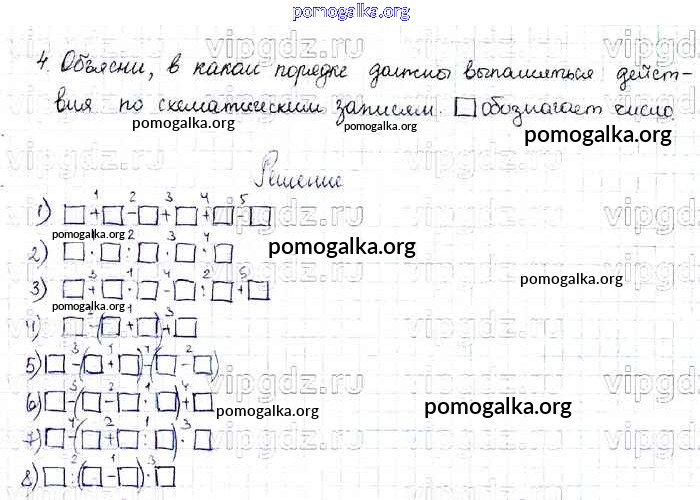 pomogalka.org
4. Объясни, в каком порядке должны выполняться дейст-
вия по схематическим записям. □ обозначает число.
pomogalka.org pomogalka.org pomogalka.org
Решение
1) □ +¹ □ -² □ +³ □ +⁴ □ -⁵ □
2) □ · □ :² □ ·³ □ ·⁴ □
pomogalka.org pomogalka.org
3) □ +³ □ ·¹ □ -⁴ □ :² □ +⁵ □
pomogalka.org
4) □ -² (□ +¹ □) +³ □
5) □ -³ (□ +¹ □) - (□ -² □)
pomogalka.org
6) □ -³ (□ -² □ ·¹ □) +⁴ □
pomogalka.org pomogalka.org
7) □ -⁴ (□ +² □ :¹ □) ·³ □
8) □ :² (□ -¹ □) ·³ □
vipgdz.ru